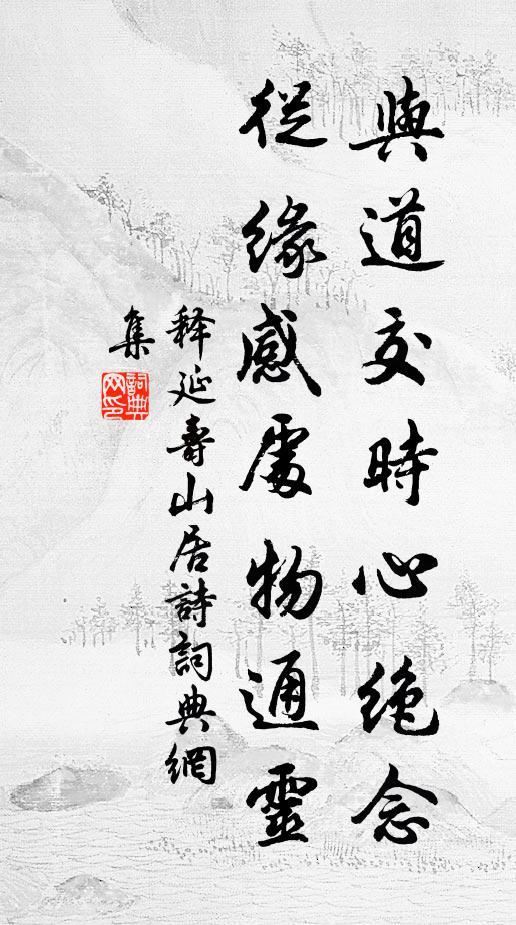 與道交時心絶念
從緣感處物通靈
释延壽山居詩詞典網
集
詞典網印